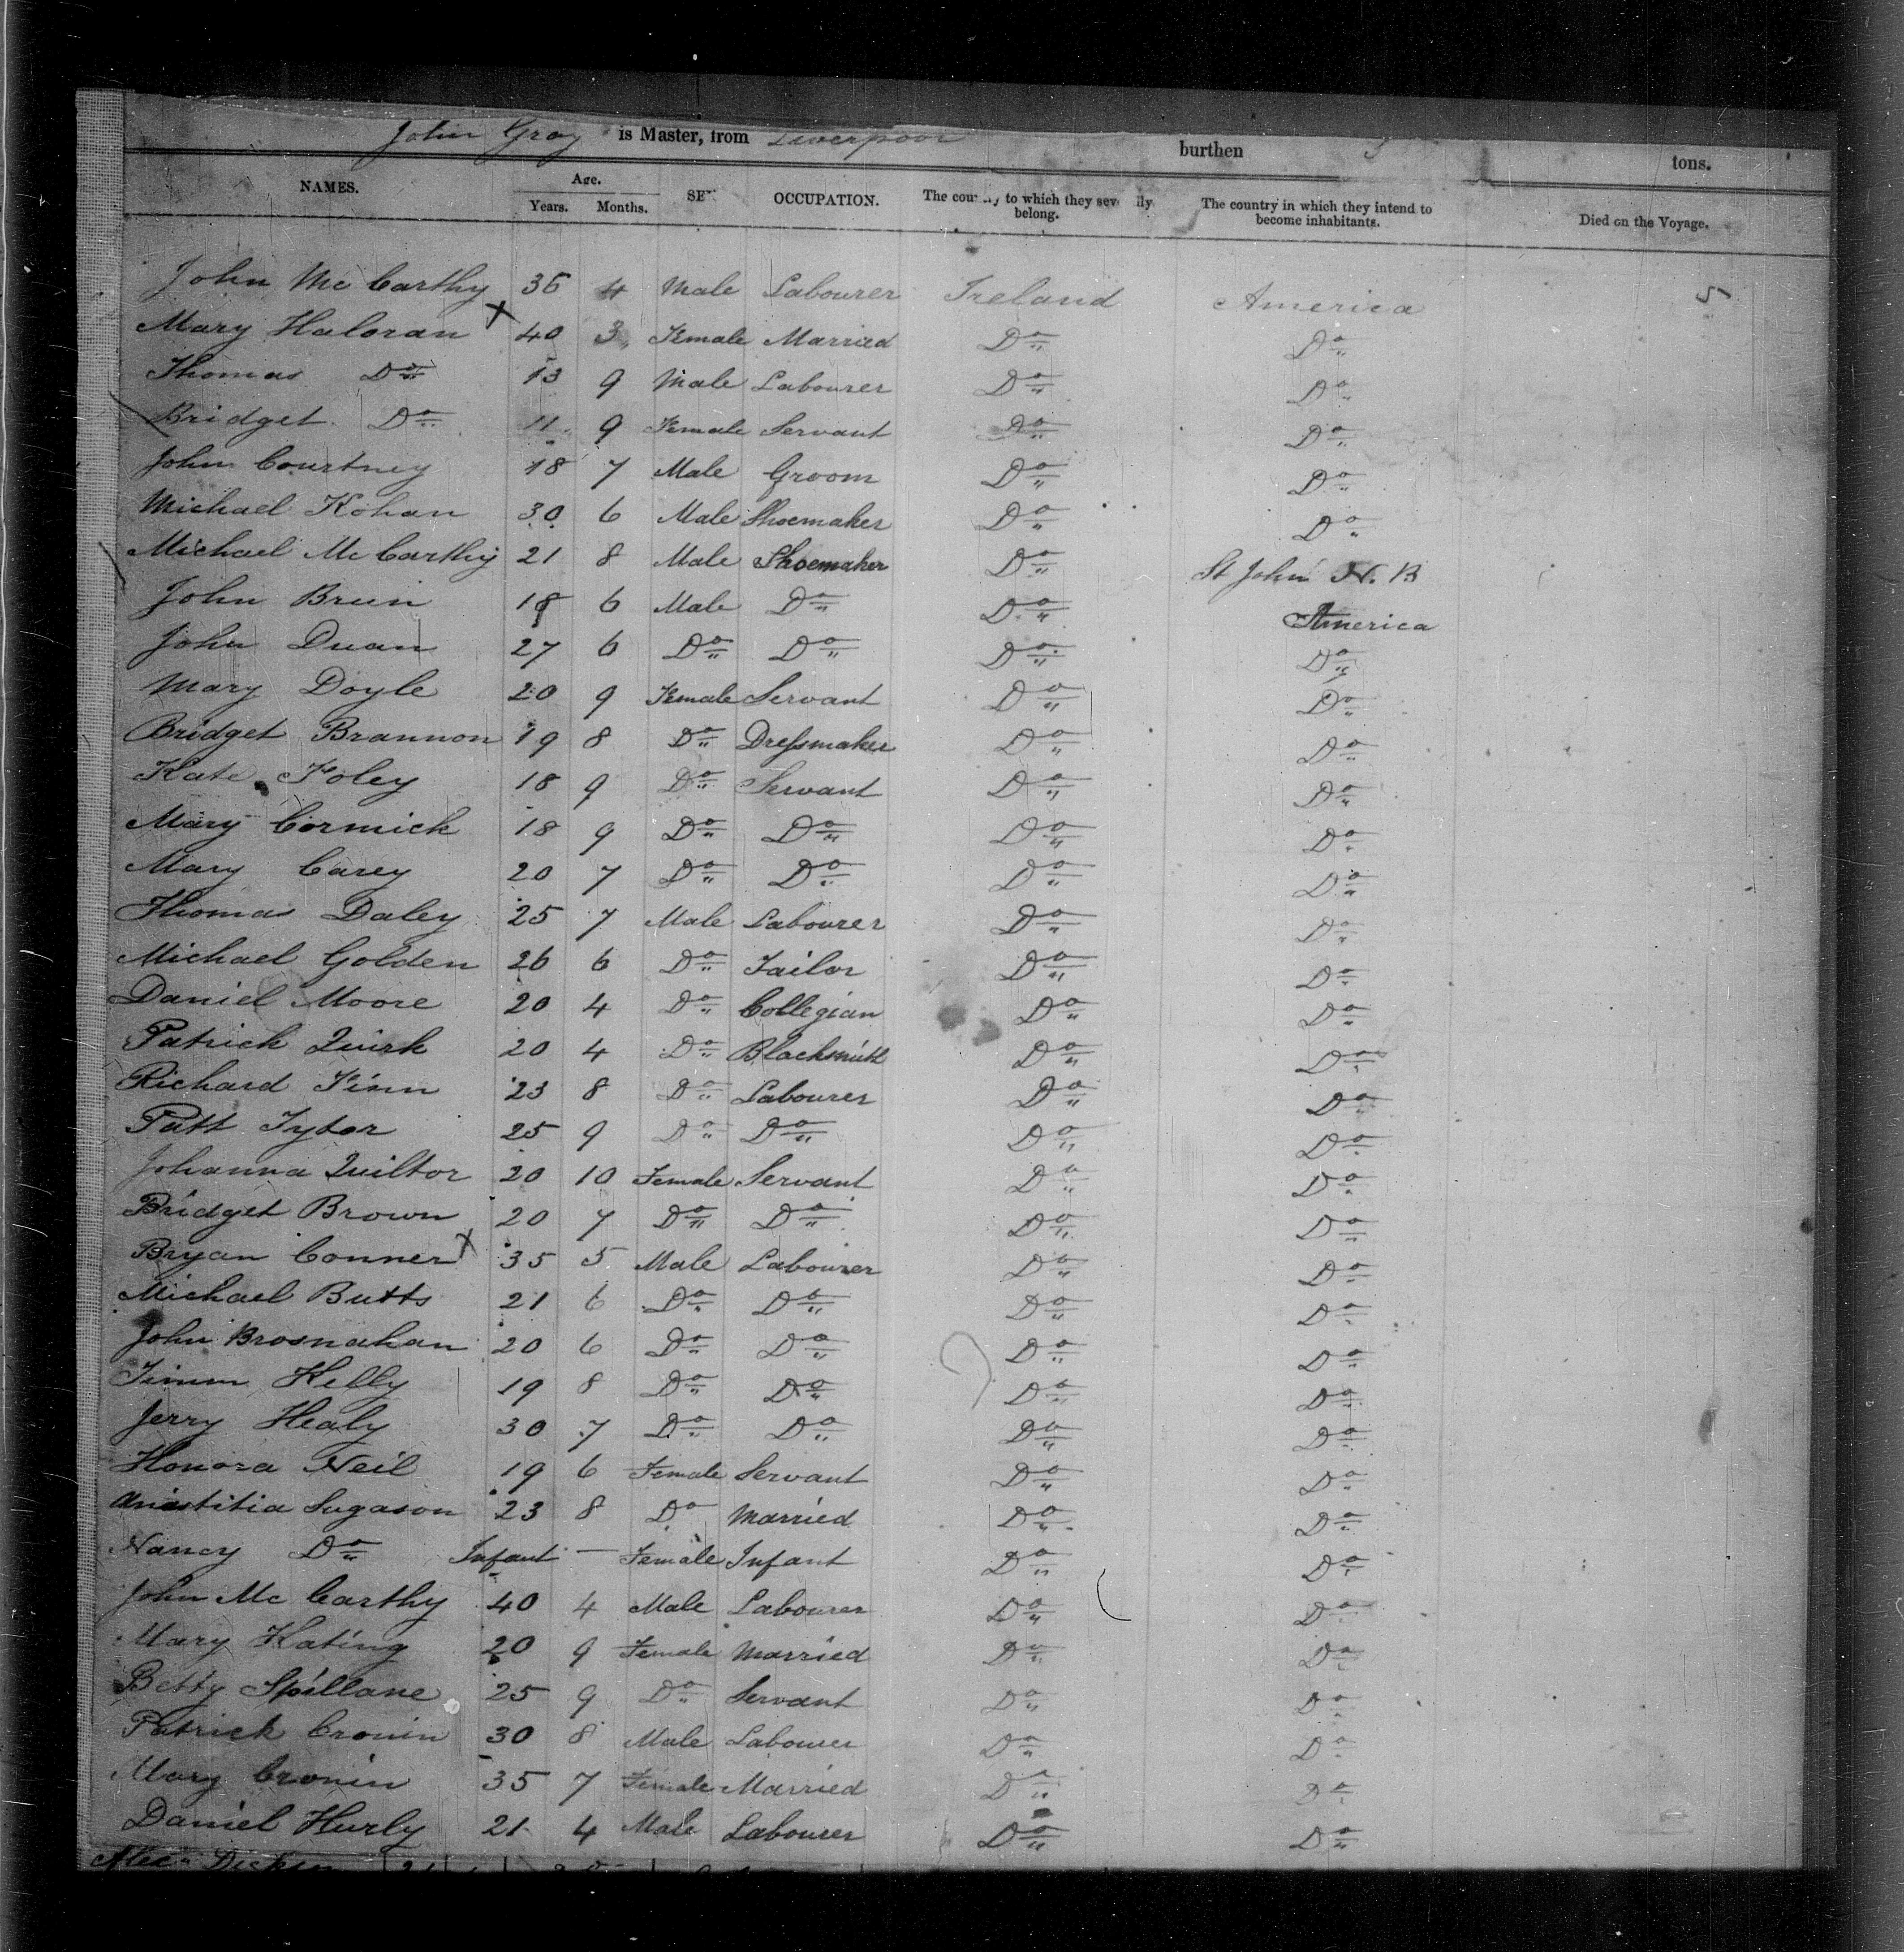 John Gray is Master, from Liverpool burthen tons.
NAMES. Age. Years. Months. SEX OCCUPATION. The country to which they severally belong. The country in which they intend to become inhabitants. Died on the Voyage.
John Mc Carthy 36 4 Male Labourer Ireland America 5
Mary Haloran X 40 3 Female Married Do Do
Thomas Do 13 9 Male Labourer Do Do
Bridget Do 11 9 Female Servant Do Do
John Courtney 18 7 Male Groom Do Do
Michael Kohan 30 6 Male Shoemaker Do Do
Michael Mc Carthy 21 8 Male Shoemaker Do St John N. B
John Brun 18 6 Male Do Do America
John Duan 27 6 Do Do Do Do
Mary Doyle 20 9 Female Servant Do Do
Bridget Brannon 19 8 Do Dressmaker Do Do
Kate Foley 18 9 Do Servant Do Do
Mary Cormick 18 9 Do Do Do Do
Mary Carey 20 7 Do Do Do Do
Thomas Daley 25 7 Male Labourer Do Do
Michael Golden 26 6 Do Tailor Do Do
Daniel Moore 20 4 Do Collegian Do Do
Patrick Quirk 20 4 Do Blacksmith Do Do
Richard Finn 23 8 Do Labourer Do Do
Patt Tytor 25 9 Do Do Do Do
Johanna Quiltor 20 10 Female Servant Do Do
Bridget Brown 20 7 Do Do Do Do
Bryan Conner X 35 5 Male Labourer Do Do
Michael Butts 21 6 Do Do Do Do
John Brosnahan 20 6 Do Do Do Do
Timm Kelly 19 8 Do Do Do Do
Jerry Healy 30 7 Do Do Do Do
Honora Neil 19 6 Female Servant Do Do
Anistitia Sugason 23 8 Do Married Do Do
Nancy Do Infant — Female Infant Do Do
John Mc Carthy 40 4 Male Labourer Do Do
Mary Kating 20 9 Female Married Do Do
Betty Spillane 25 9 Do Servant Do Do
Patrick Cronin 30 8 Male Labourer Do Do
Mary Cronin 35 7 Female Married Do Do
Daniel Hurly 21 4 Male Labourer Do Do